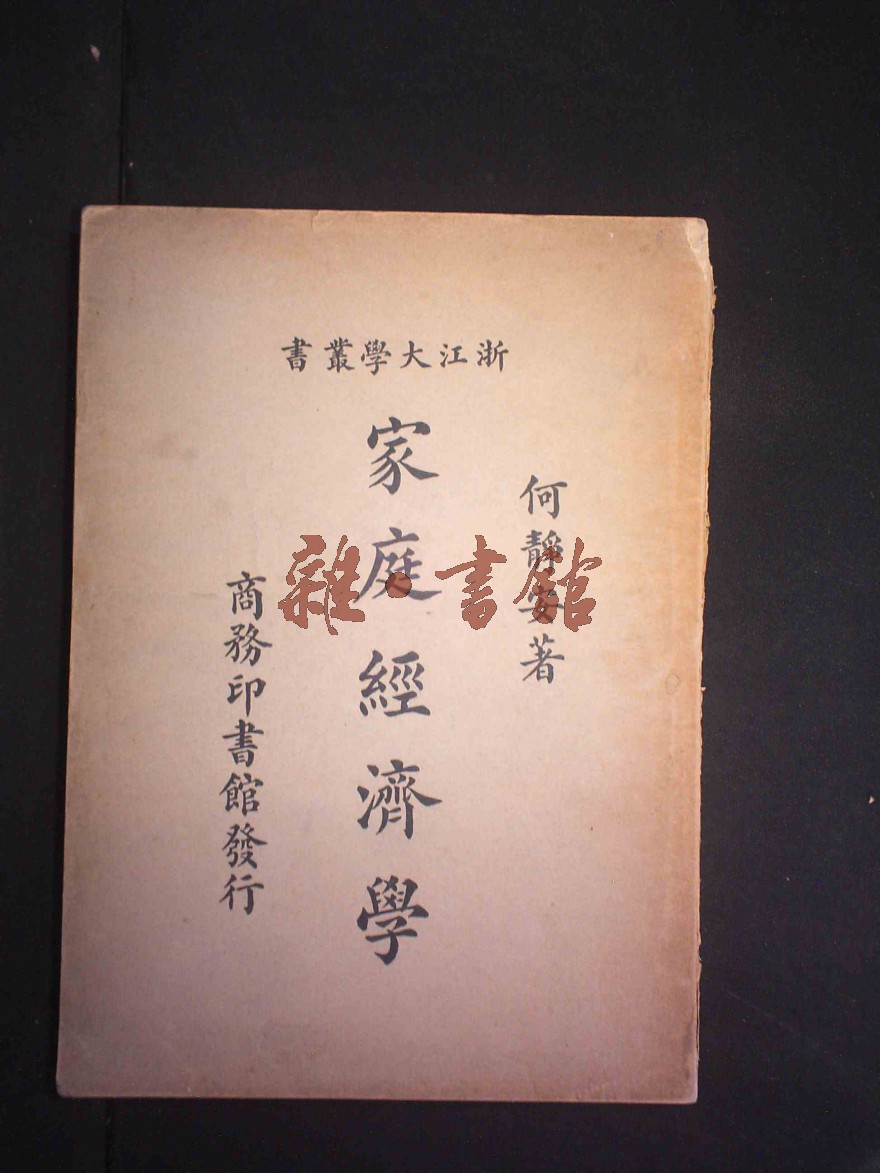 浙江大學叢書
何靜安著
家庭經濟學
商務印書館發行
雜·書館